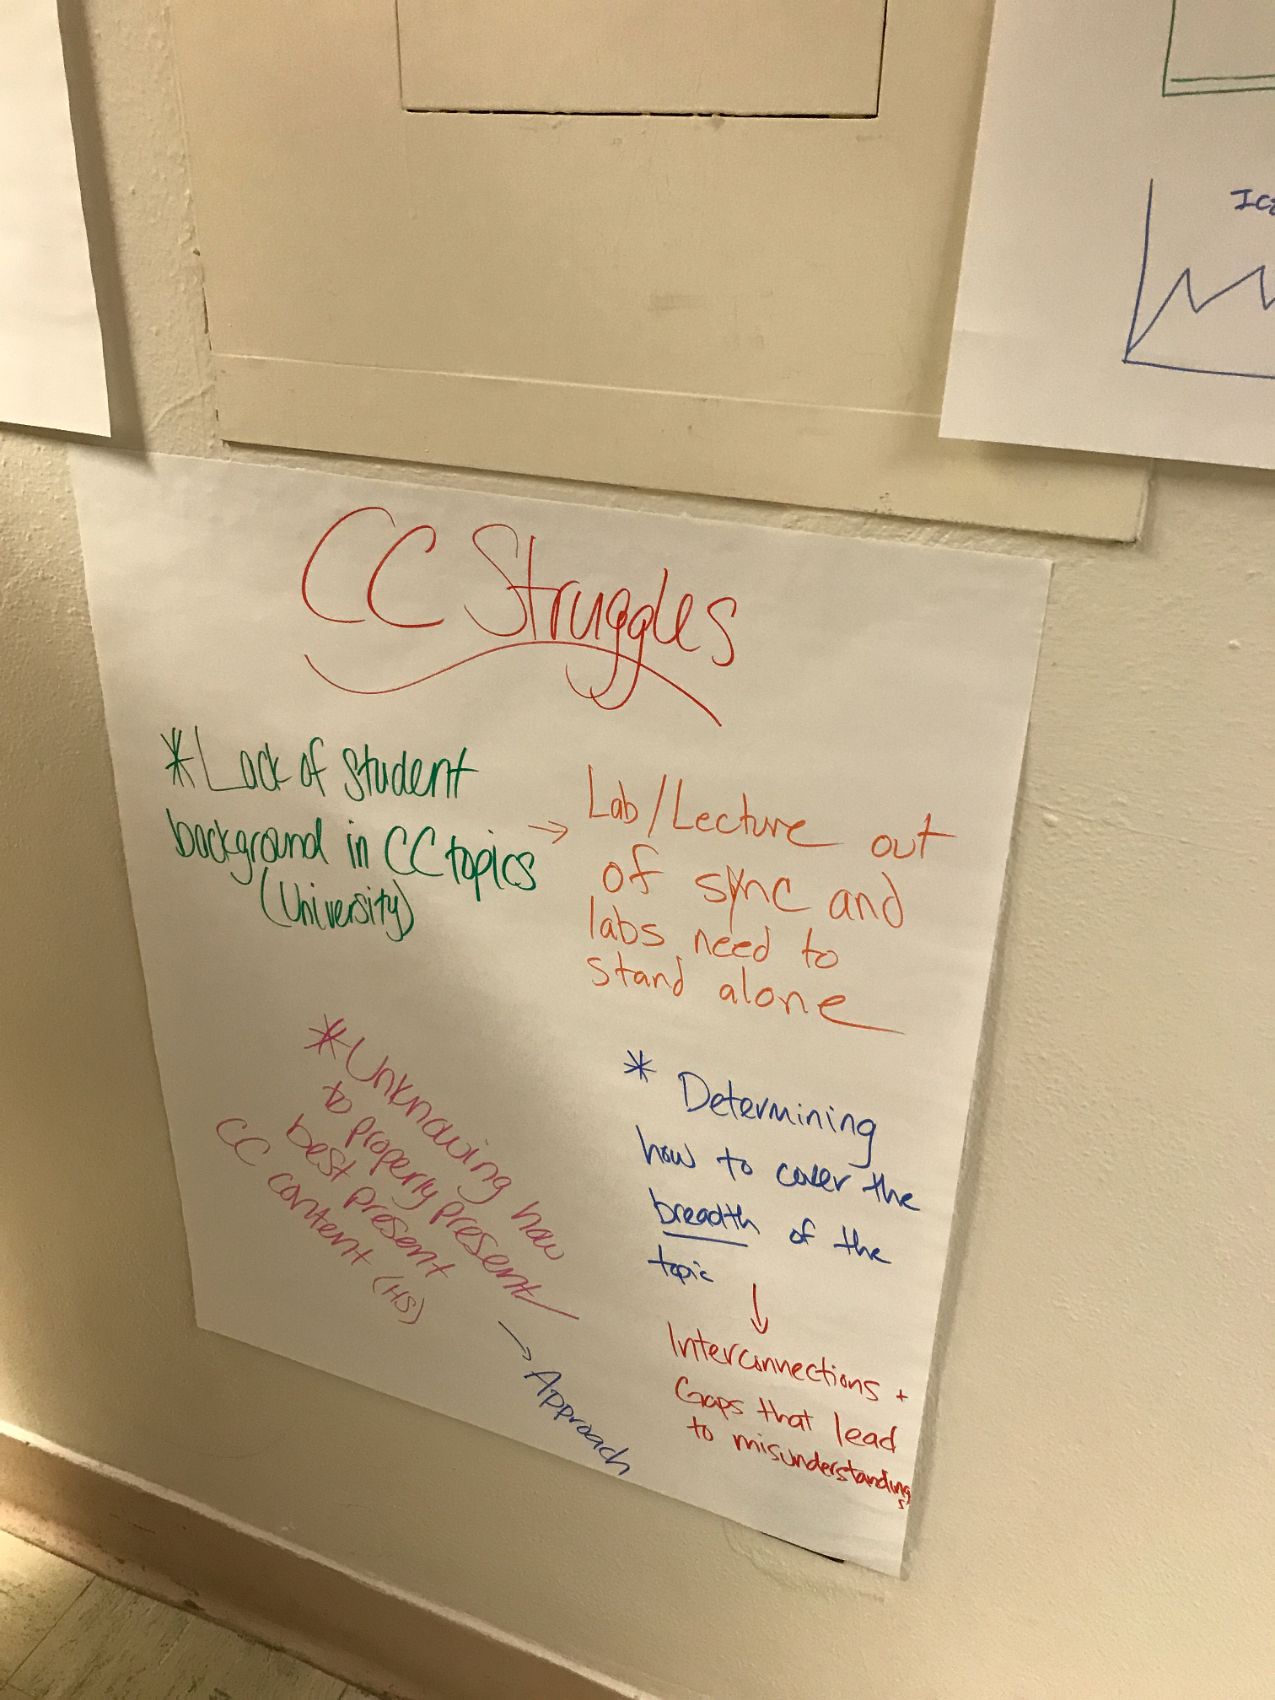 CC Struggles
*Lack of student
background in CC topics
(University)
→ Lab/Lecture out
of sync and
labs need to
stand alone
*Unknowing how
to properly present
best present
CC content (HS)
→ Approach
* Determining
how to cover the
breadth of the
topic
↓
Interconnections +
Gaps that lead
to misunderstandings